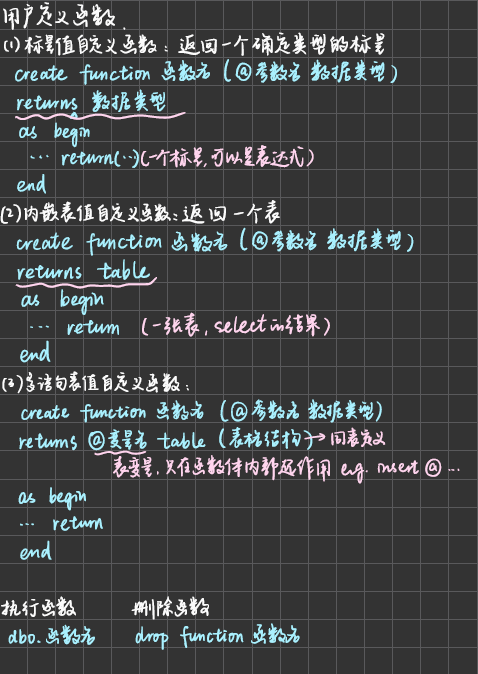 用户定义函数
(1)标量值自定义函数：返回一个确定类型的标量
create function 函数名 (@参数名 数据类型)
returns 数据类型
as begin
… return(…)(一个标量,可以是表达式)
end
(2)内嵌表值自定义函数：返回一个表
create function 函数名 (@参数名 数据类型)
returns table
as begin
… return (一张表, select的结果)
end
(3)多语句表值自定义函数：
create function 函数名 (@参数名 数据类型)
returns @变量名 table (表格结构)→同表定义
表变量,只在函数体内部起作用 e.g. insert @…
as begin
… return
end
执行函数 删除函数
dbo.函数名 drop function 函数名